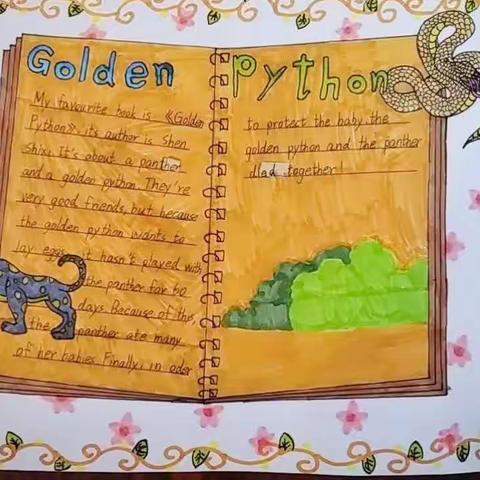 Golden Python
My favourite book is 《Golden
Python》, its author is Shen
Shixi. It's about a panther
and a golden python. They're
very good friends, but because
the golden python wants to
lay eggs, it hasn't played with
the panther for 60
days. Because of this,
the panther ate many
of her babies. Finally, in oder
to protect the baby, the
golden python and the panther
died together!